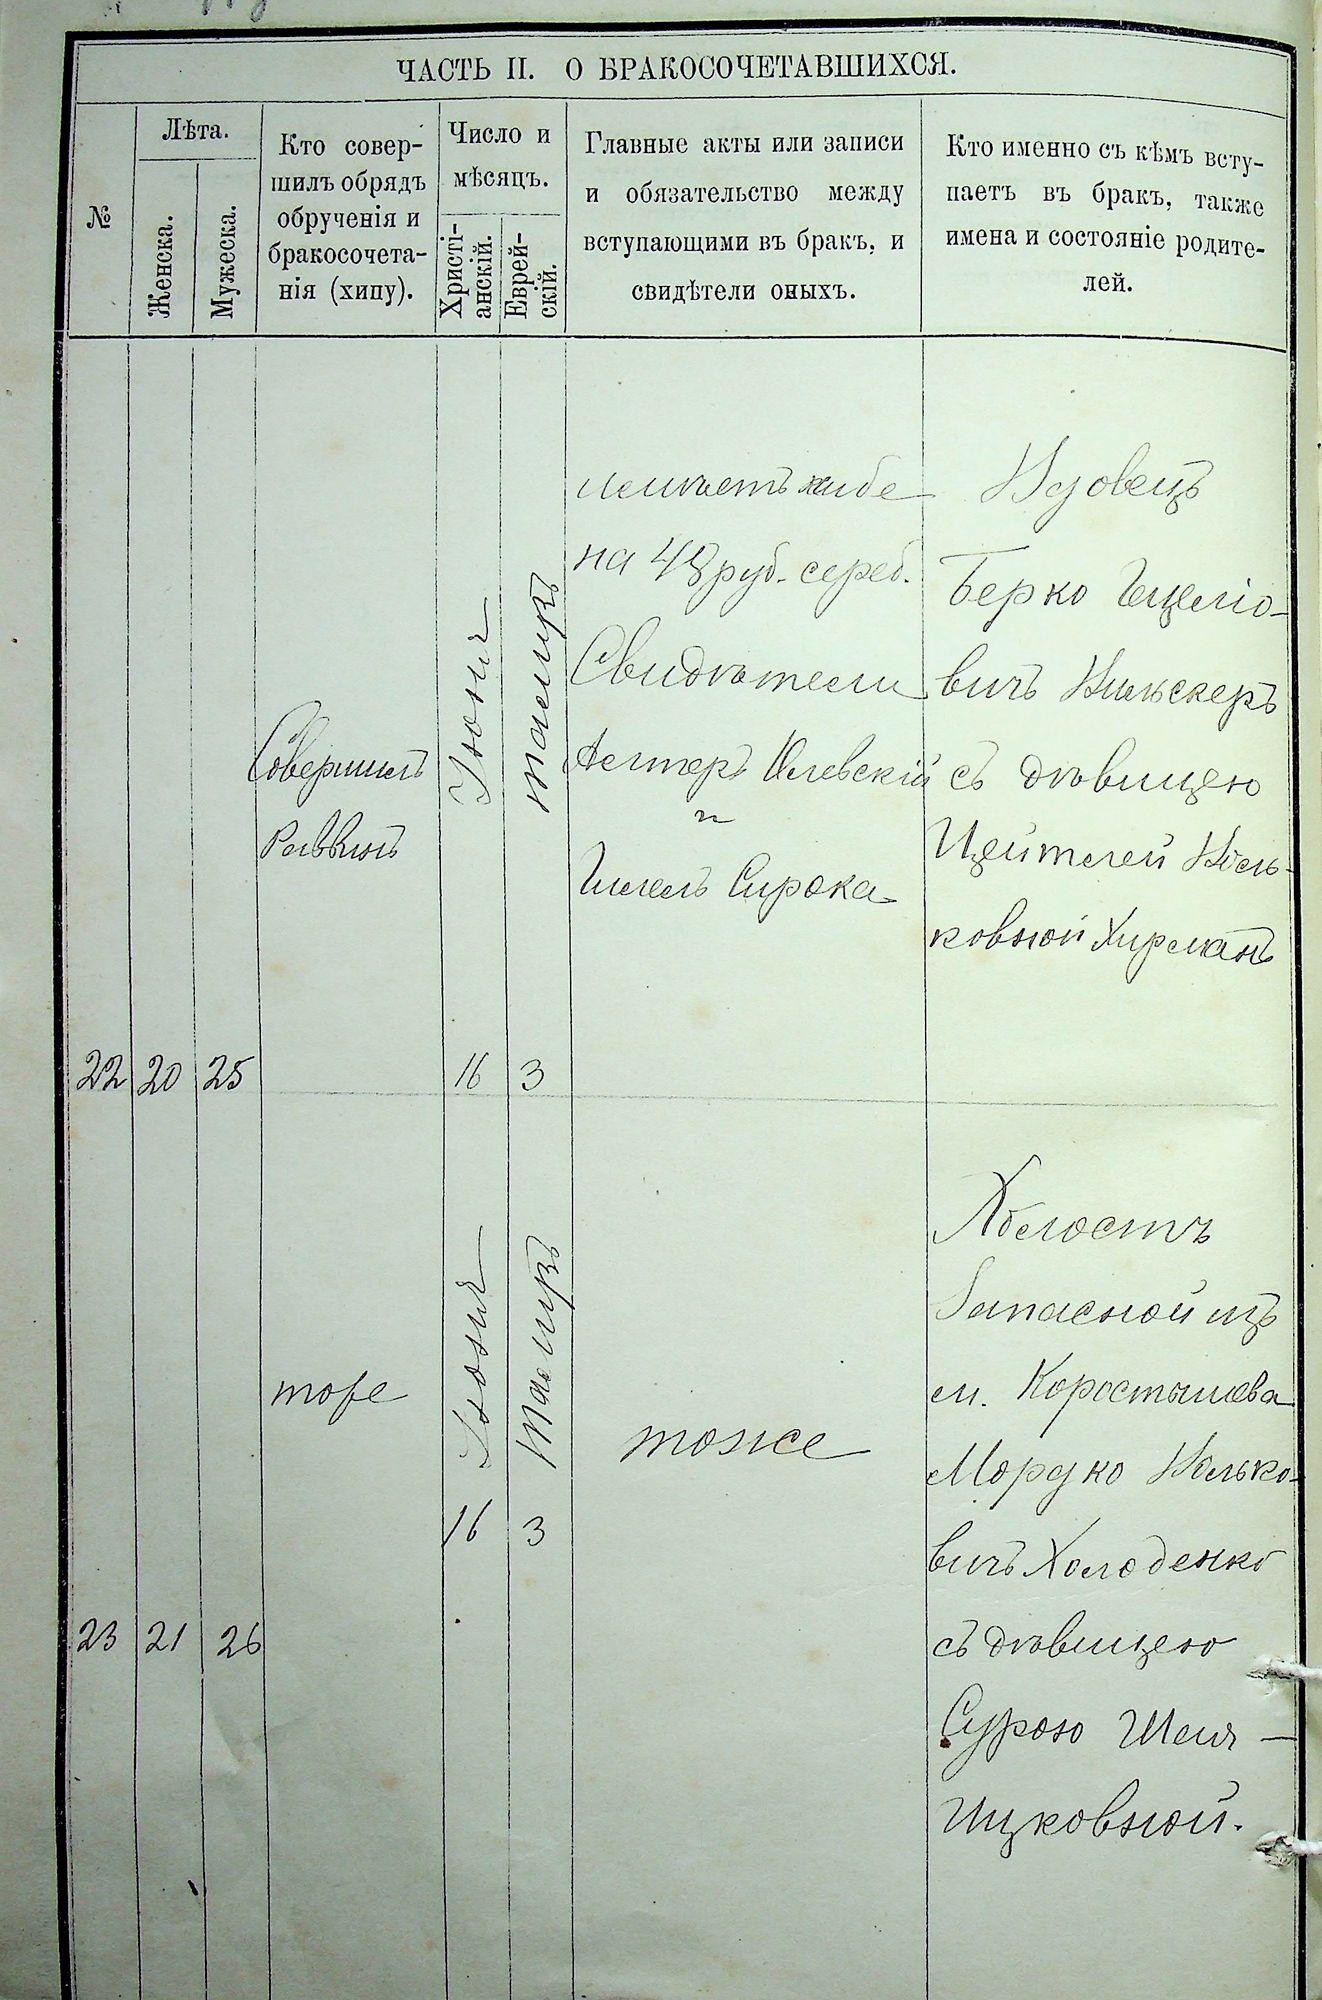 ЧАСТЬ II. О БРАКОСОЧЕТАВШИХСЯ.
№
Лѣта.
Женска.
Мужеска.
Кто совер-
шилъ обрядъ
обрученія и
бракосочета-
нія (хипу).
Число и
мѣсяцъ.
Христі-
анскій.
Еврей-
скій.
Главные акты или записи
и обязательство между
вступающими въ бракъ, и
свидѣтели оныхъ.
Кто именно съ кѣмъ всту-
паетъ въ бракъ, также
имена и состояніе родите-
лей.
22
20
25
Совершилъ
Раввинъ
Іюня
16
Тамузъ
3
на 48 руб. сереб.
Свидѣтели
и
Сирока
Вдовецъ
Берко
вичъ
съ дѣвицею
Цейтлей
ковной
23
21
26
тоже
Іюня
16
Тамузъ
3
тоже
Холостъ
Запасной изъ
м. Коростышева
Мордко Волько-
вичъ Холоденко
съ дѣвицею
Сурою
Ицковной.